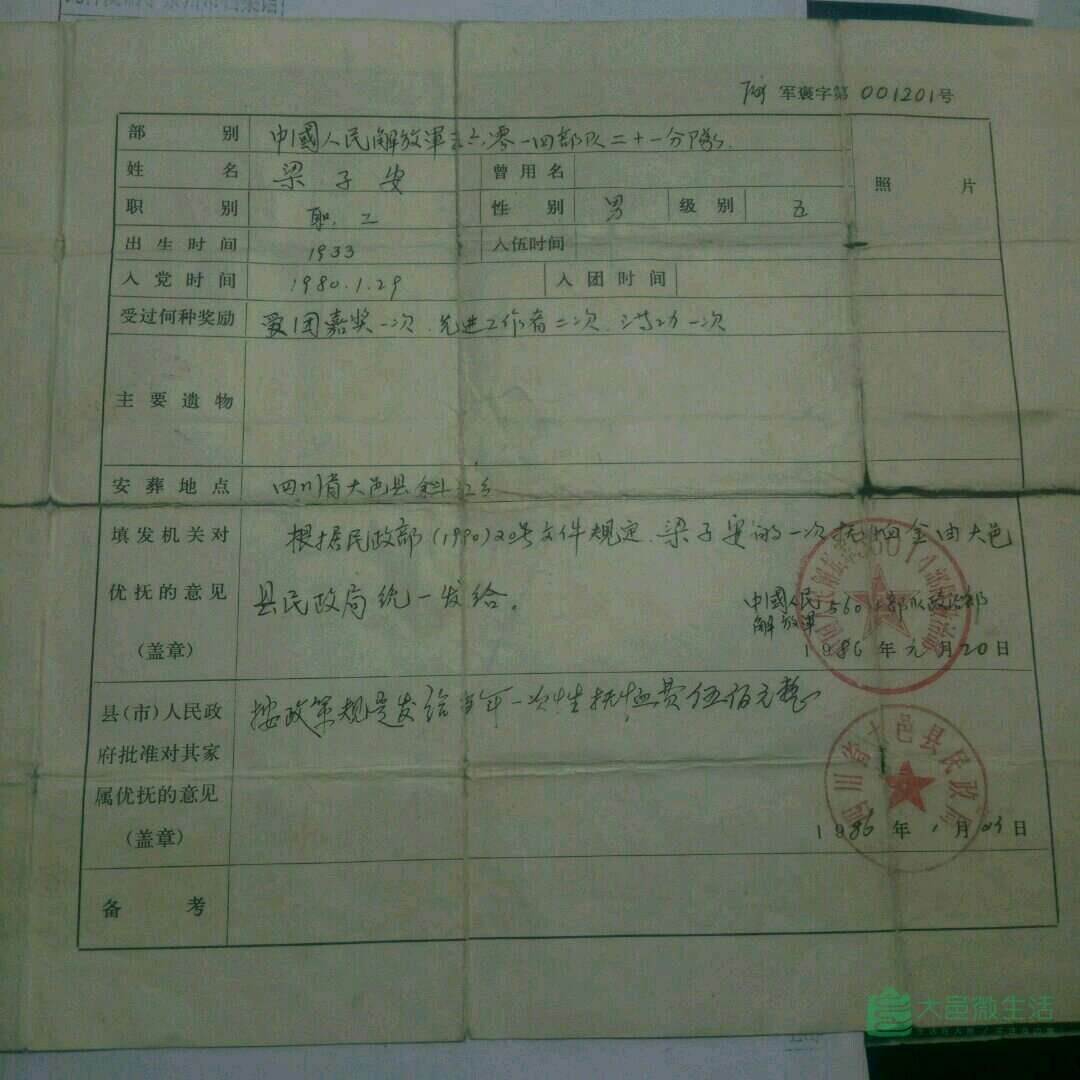 军褒字第001201号
部别 中國人民解放軍五六零一四部队二十一分隊
姓名 梁子安 曾用名 照片
职别 职工 性别 男 级别 五
出生时间 1933 入伍时间
入党时间 1980.1.29 入团时间
受过何种奖励 受团嘉奖一次、先进工作者二次、功一次
主要遗物
安葬地点 四川省大邑县斜江乡
填发机关对 根据民政部(1980)20号文件规定、梁子安的一次抚恤金由大邑
优抚的意见 县民政局统一发给。
中國人民
解放軍 56014部队政治部
(盖章) 1986年元月20日
县(市)人民政 按政策规定发给一次性抚恤费伍佰元整
府批准对其家
属优抚的意见
四川省大邑县民政局
(盖章) 1986年1月日
备考
大邑微生活